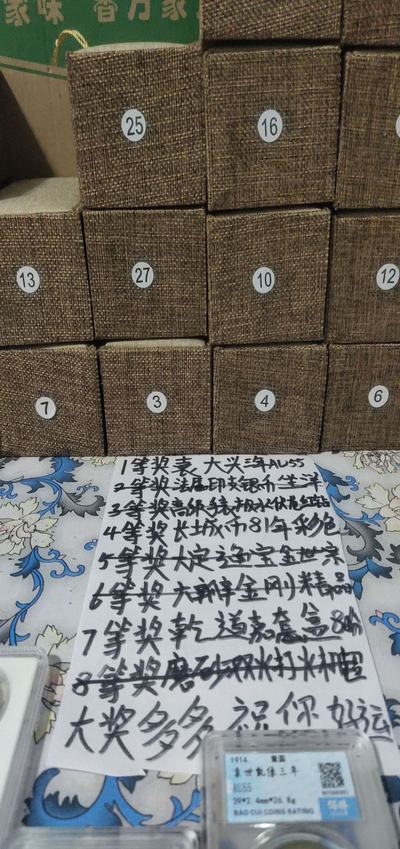 家味 香万家
25
16
13
27
10
12
7
3
4
6
1等奖袁大头三年AU55
2等奖法属印支银币坐洋
3等奖
4等奖长城币81年彩色
5等奖大定通宝金世宗
6等奖大新金刚精品
7等奖乾道嘉套盒8枚
8等奖磨砂双火打火机
大奖多多祝你好运
1914
袁世凯像三年
AU55
39*2.4mm*26.8g
BAO CUI COINS RATING